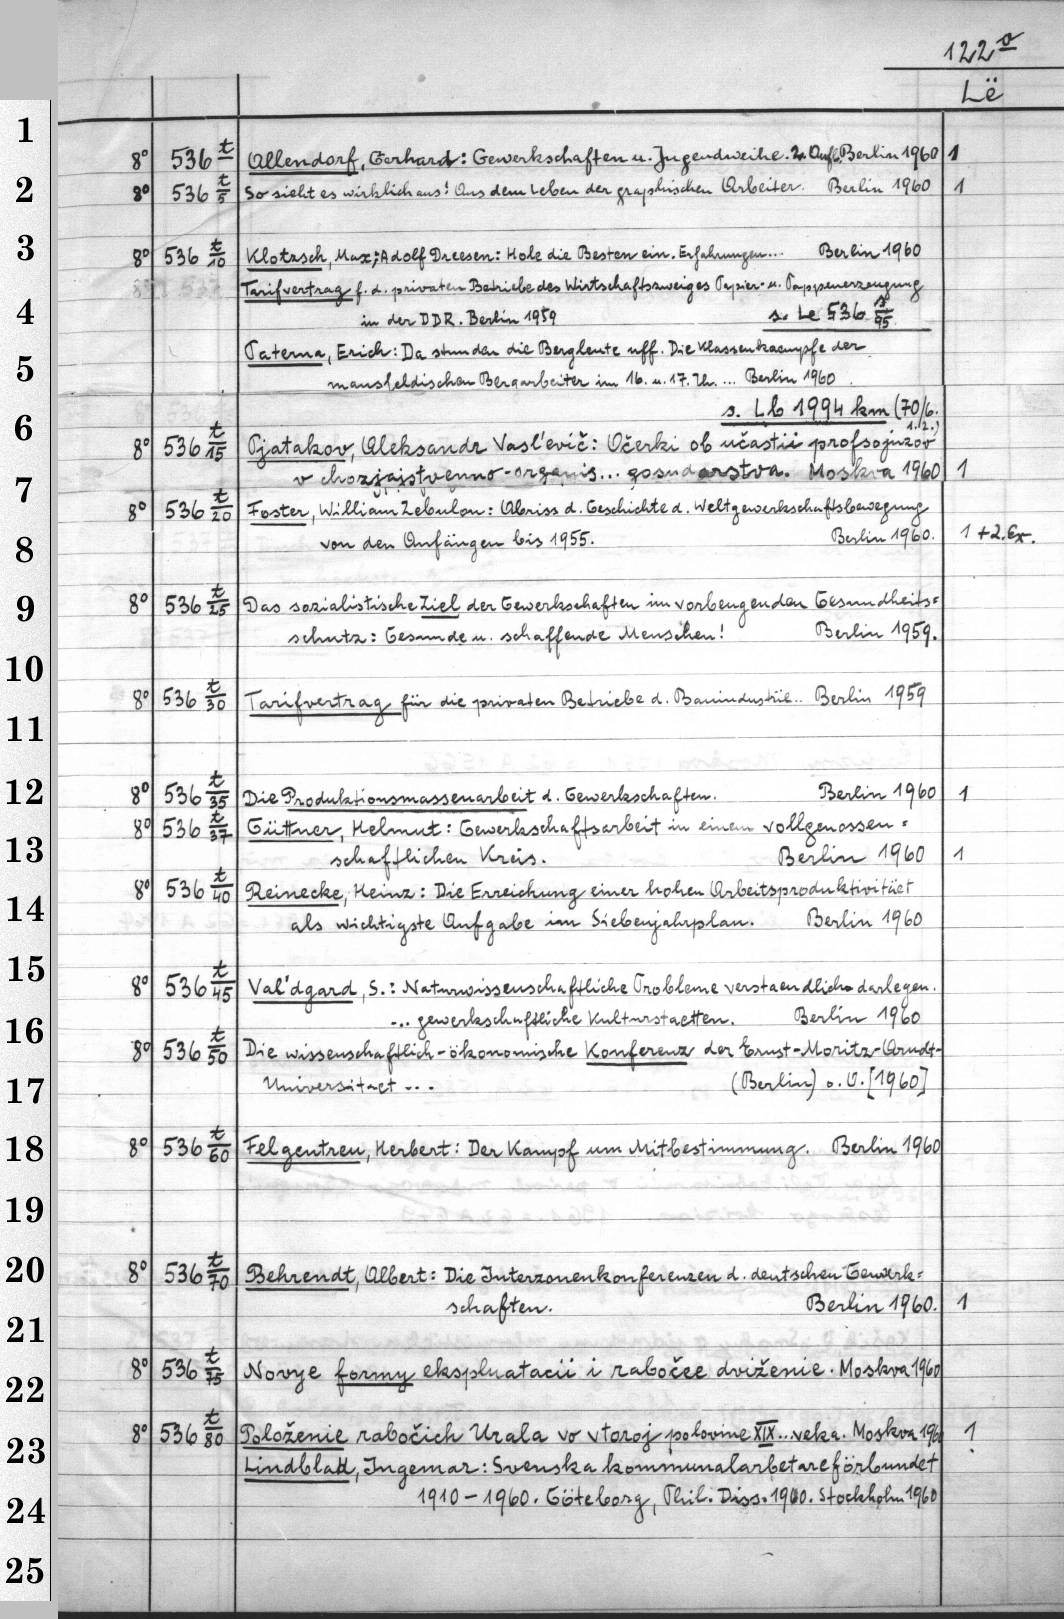 122 v
Lë
1
8° 536 t Allendorf, Gerhard: Gewerkschaften u. Jugendweihe. 2. Aufl. Berlin 1960 1
2 8° 536 t/5 So sieht es wirklich aus! Aus dem Leben der graphischen Arbeiter. Berlin 1960 1
3 8° 536 t/10 Klotzsch, Max; Adolf Dreesen: Hole die Besten ein. Erfahrungen... Berlin 1960
Tarifvertrag f. d. privaten Betriebe des Wirtschaftszweiges Papier- u. Pappenerzeugung
4 in der DDR. Berlin 1959 s. Le 536 s/95
Paterna, Erich: Da stunden die Bergleute uff. Die Klassenkaempfe der
5 mansfeldischen Bergarbeiter im 16. u. 17. Jh. ... Berlin 1960
s. Lb 1994 km (70/6.
6 1.2.)
8° 536 t/15 Pjatakov, Aleksandr Vasl'evič: Očerki ob učastii profsojuzov
v chozjajstvenno-organis... gosudarstva. Moskva 1960 1
7
8° 536 t/20 Foster, William Zebulon: Abriss d. Geschichte d. Weltgewerkschaftsbewegung
8 von den Anfängen bis 1955. Berlin 1960. 1 + 2. Ex.
9 8° 536 t/25 Das sozialistische Ziel der Gewerkschaften im vorbeugenden Gesundheits=
schutz: Gesunde u. schaffende Menschen! Berlin 1959.
10
8° 536 t/30 Tarifvertrag für die privaten Betriebe d. Bauindustrie.. Berlin 1959
11
12 8° 536 t/35 Die Produktionsmassenarbeit d. Gewerkschaften. Berlin 1960 1
8° 536 t/37 Güttner, Helmut: Gewerkschaftsarbeit in einem vollgenossen=
13 schaftlichen Kreis. Berlin 1960 1
8° 536 t/40 Reinecke, Heinz: Die Erreichung einer hohen Arbeitsproduktivitäet
14 als wichtigste Aufgabe im Siebenjahrplan. Berlin 1960
15
8° 536 t/45 Val'dgard, S.: Naturwissenschaftliche Probleme verstaendlich darlegen.
16 ... gewerkschaftliche Kulturstaetten. Berlin 1960
8° 536 t/50 Die wissenschaftlich-ökonomische Konferenz der Ernst-Moritz-Arndt-
17 Universitaet ... (Berlin) o. V. [1960]
18 8° 536 t/60 Felgentreu, Herbert: Der Kampf um Mitbestimmung. Berlin 1960
19
20 8° 536 t/70 Behrendt, Albert: Die Interzonenkonferenzen d. deutschen Gewerk=
schaften. Berlin 1960. 1
21
8° 536 t/75 Novye formy ekspluatacii i rabočee dviženie. Moskva 1960
22
8° 536 t/80 Položenie rabočich Urala vo vtoroj polovine XIX... veka. Moskva 1960 1
23 Lindblad, Ingemar: Svenska kommunalarbetareförbundet
1910-1960. Göteborg, Phil. Diss. 1960. Stockholm 1960
24
25